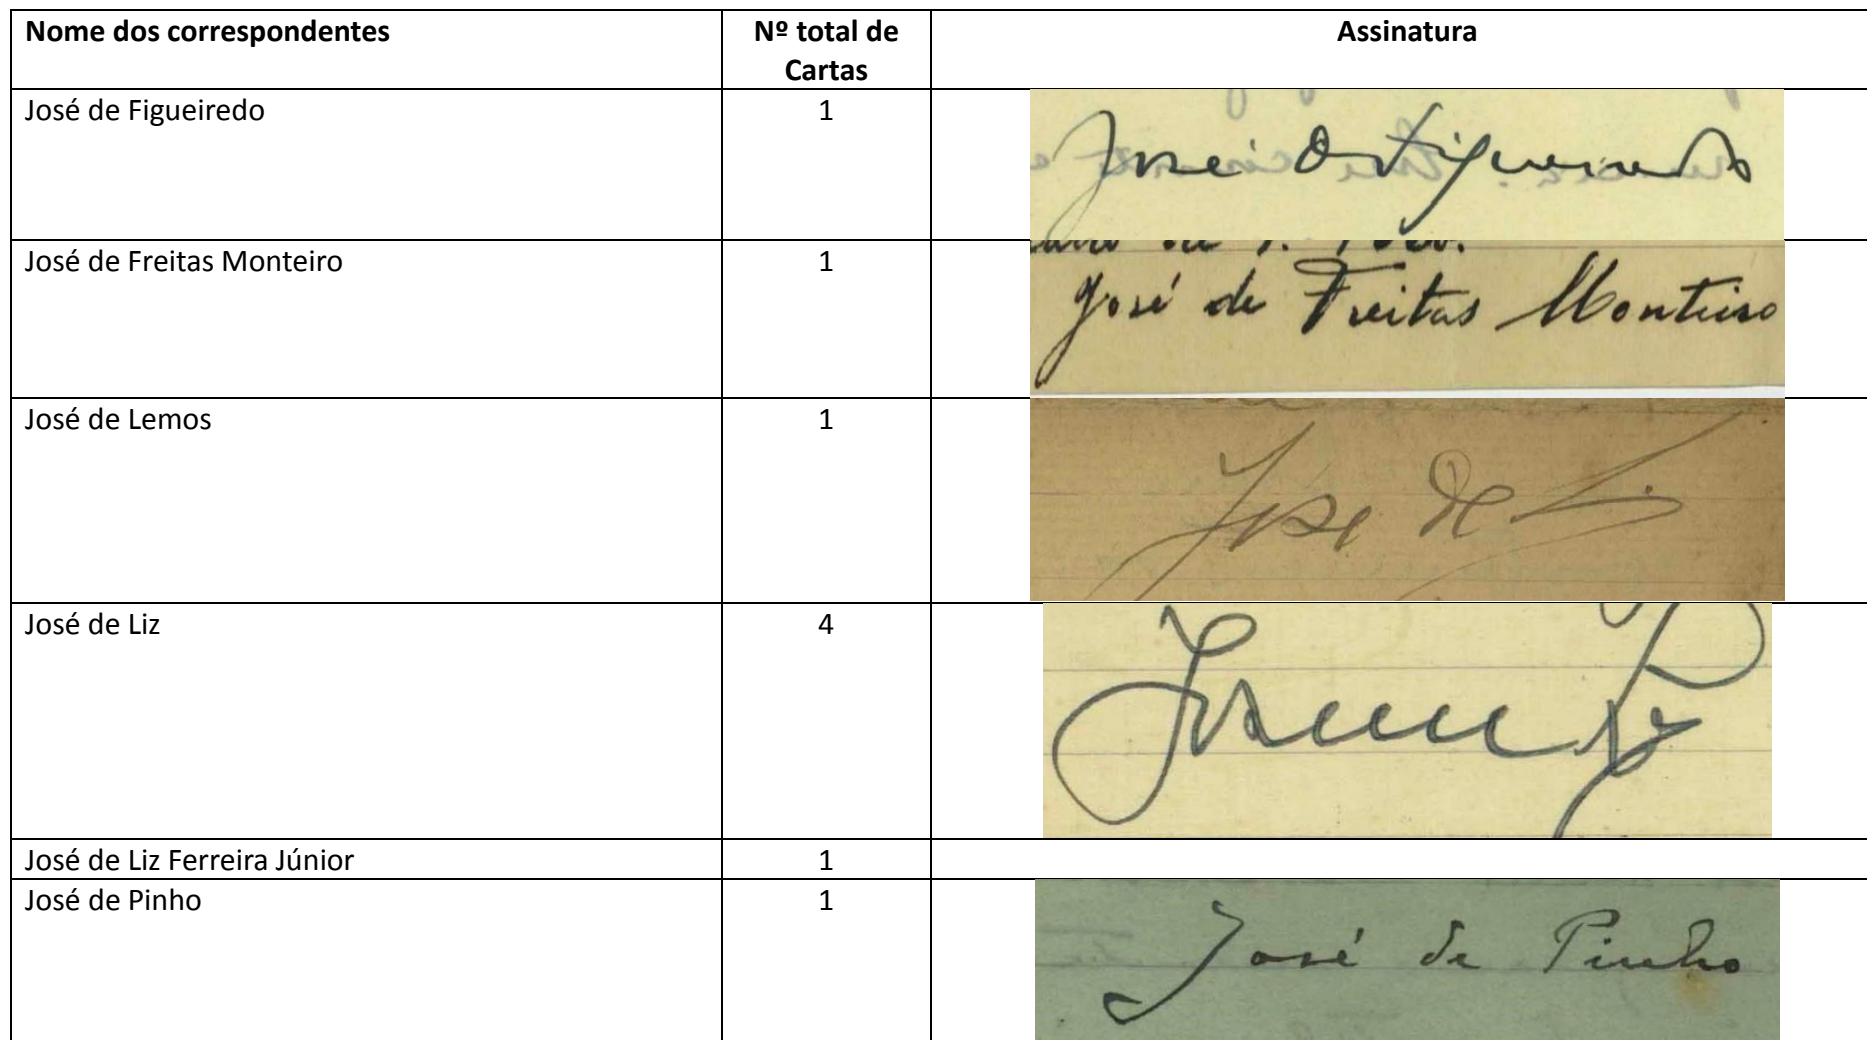 Nome dos correspondentes
Nº total de
Cartas
Assinatura
José de Figueiredo
1
José de Figueiredo
José de Freitas Monteiro
1
José de Freitas Monteiro
José de Lemos
1
José de
José de Liz
4
José de Liz Ferreira Júnior
1
José de Pinho
1
José de Pinho